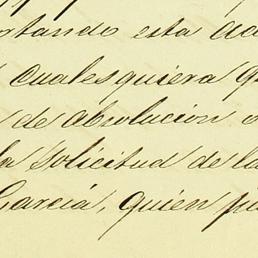 rtando esta ac
cualesquiera q
de absolucion o
la solicitud de la
García, quien pu